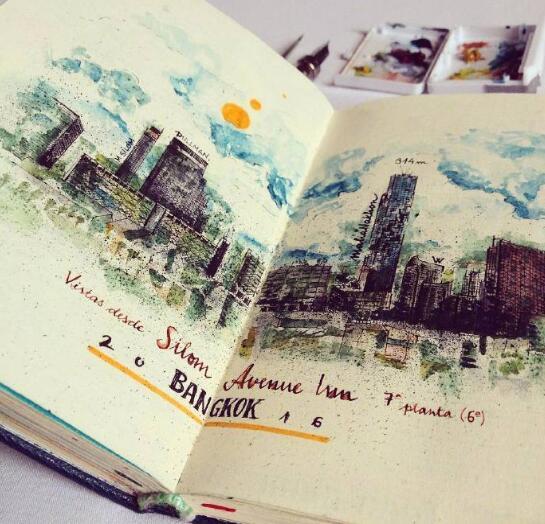 PULLMAN
314m
Mahanakhon
W
Vistas desde Silom Avenue Inn 7ª planta (6º)
2 0 BANGKOK 1 6